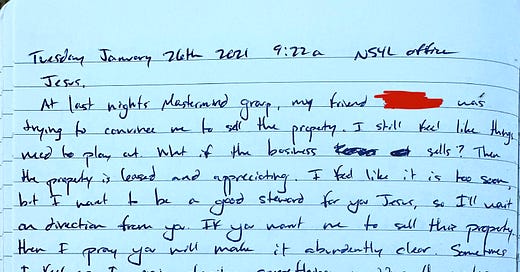 Tuesday January 26th 2021 9:22a NSYL office
Jesus,
At last nights Mastermind group, my friend was
trying to convince me to sell the property. I still feel like things
need to play out. What if the business sells? Then
the property is leased and appreciating. I feel like it is too soon,
but I want to be a good steward for you Jesus, so I'll wait
on direction from you. If you want me to sell this property
then I pray you will make it abundently clear. Sometimes
I feel as I